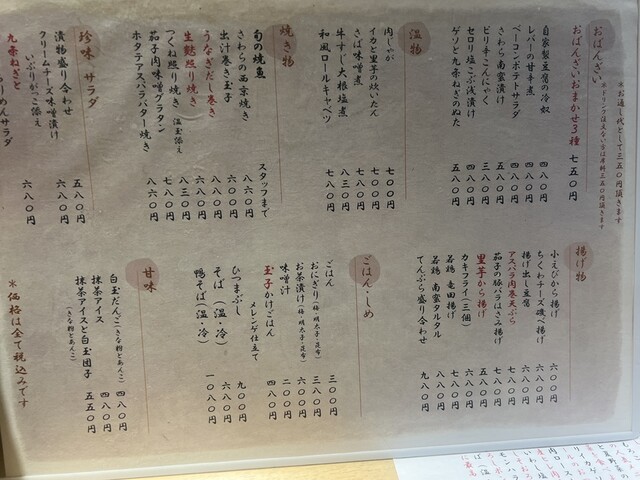 ＊お通し代として三五〇円頂きます
おばんざい
おばんざいおまかせ3種 七五〇円
自家製豆腐の冷奴 四八〇円
レバーの甘辛煮 四八〇円
ベーコンポテトサラダ 四八〇円
さわら南蛮漬け 五八〇円
ピリ辛こんにゃく 三八〇円
セロリ塩こぶ浅漬け 四八〇円
ゲソと九条ねぎのぬた 五八〇円
温物
肉じゃが 七〇〇円
イカと里芋の炊いたん 七〇〇円
さば味噌煮 七〇〇円
牛すじ大根塩煮 八三〇円
和風ロールキャベツ 七八〇円
焼き物
旬の焼魚 スタッフまで
さわらの西京焼き 八六〇円
出汁巻き玉子 六〇〇円
うなぎだし巻き 八八〇円
生麩照り焼き 八三〇円
つくね照り焼き 温玉添え 七八〇円
茄子肉味噌グラタン 八八〇円
ホタテアスパラバター焼き 八六〇円
珍味 サラダ
漬物盛り合わせ 五八〇円
クリームチーズ味噌漬け
いぶりがっこ添え 六八〇円
九条ねぎと
じゃこのちりめんサラダ 六八〇円
揚げ物
小えびから揚げ 六〇〇円
ちくわチーズ磯べ揚げ 六八〇円
揚げ出し豆腐 六八〇円
アスパラ肉巻天ぷら 七八〇円
茄子の豚バラはさみ揚げ 七八〇円
里芋から揚げ 五八〇円
カキフライ(三個) 七八〇円
若鶏 竜田揚げ 七八〇円
若鶏 南蛮タルタル 八八〇円
てんぷら盛り合わせ 九八〇円
ごはん・しめ
ごはん 三〇〇円
おにぎり(梅・明太子・昆布) 三八〇円
お茶漬け(梅・明太子・昆布) 六〇〇円
味噌汁 二〇〇円
玉子かけごはん
メレンゲ仕立て 四八〇円
ひつまぶし 九〇〇円
そば(温・冷) 六八〇円
鴨そば(温・冷) 一〇八〇円
甘味
白玉だんご(きな粉とあんこ) 四八〇円
抹茶アイス 四八〇円
抹茶アイスと白玉団子
(きな粉とあんこ) 五五〇円
＊価格は全て税込みです